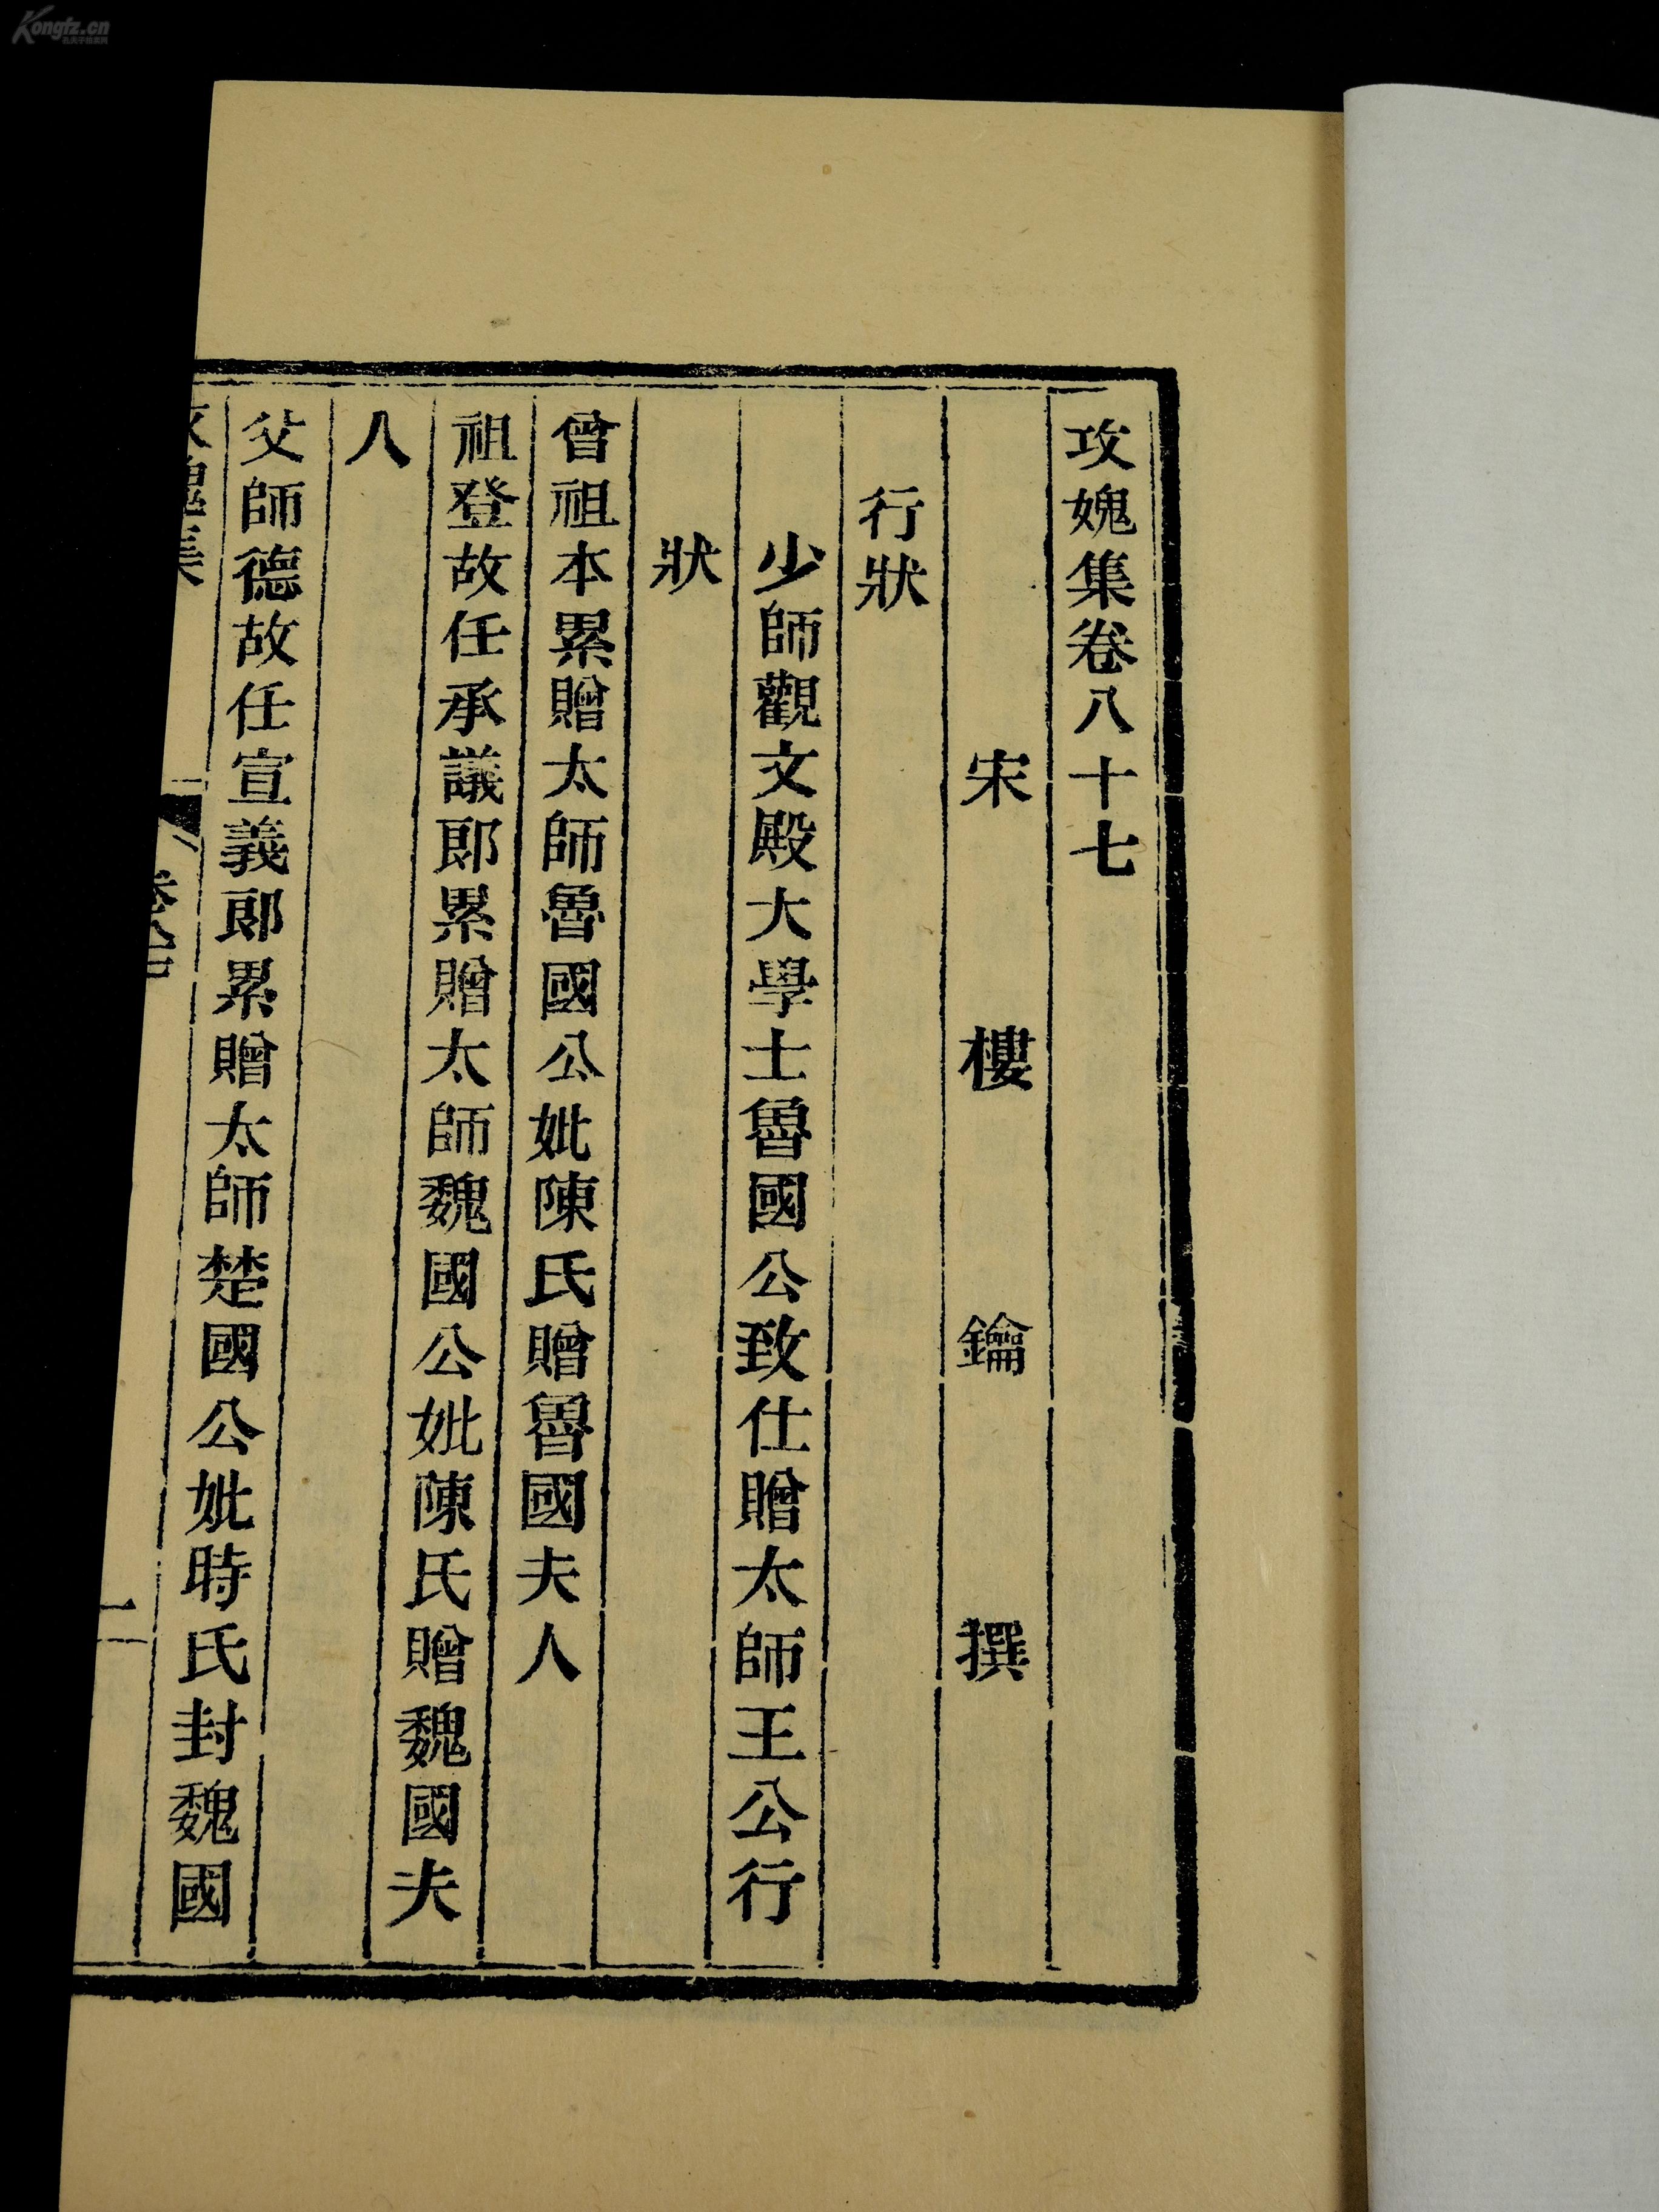 攻媿集卷八十七
宋 樓 鑰 撰
行狀
少師觀文殿大學士魯國公致仕贈太師王公行
狀
曾祖本累贈太師魯國公妣陳氏贈魯國夫人
祖登故任承議郎累贈太師魏國公妣陳氏贈魏國夫
人
父師德故任宣義郎累贈太師楚國公妣時氏封魏國
攻媿集 卷八十七 一
Kongfz.cn